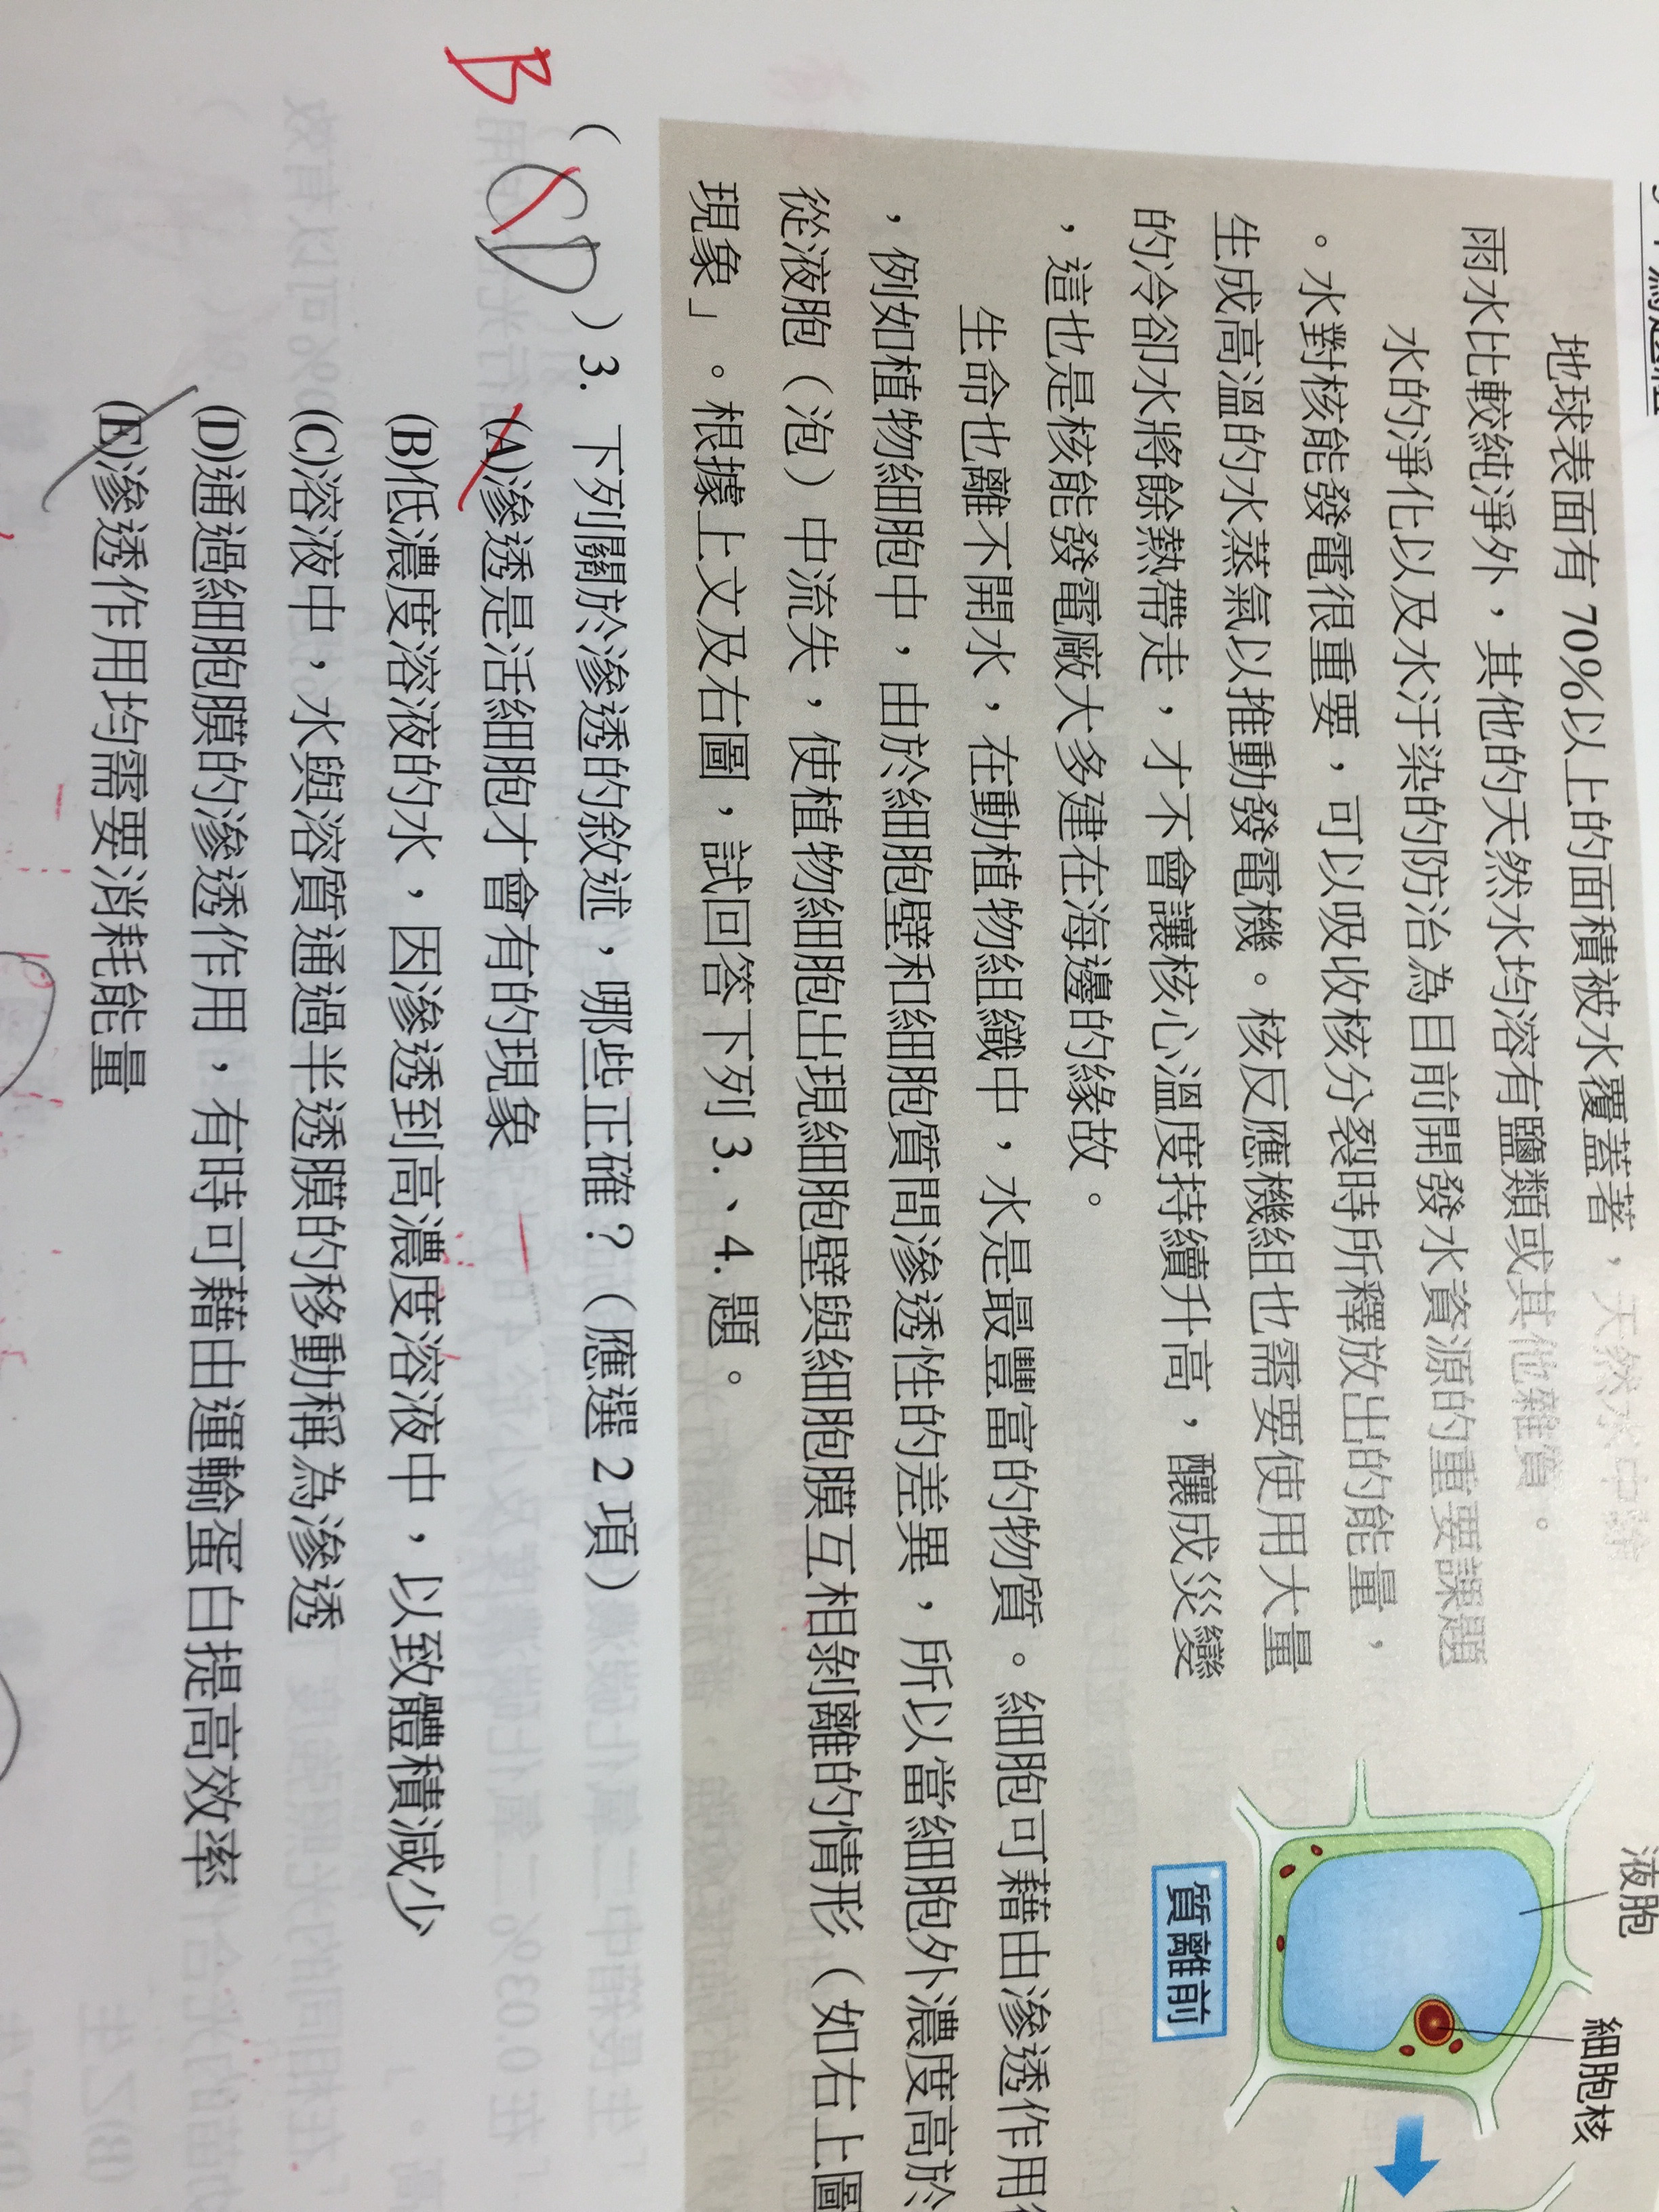 地球表面有70%以上的面積被水覆蓋著，天然水中除
雨水比較純淨外，其他的天然水均溶有鹽類或其他雜質。
水的淨化以及水汙染的防治為目前開發水資源的重要課題
。水對核能發電很重要，可以吸收核分裂時所釋放出的能量，
生成高溫的水蒸氣以推動發電機。核反應機組也需要使用大量
的冷卻水將餘熱帶走，才不會讓核心溫度持續升高，釀成災變
，這也是核能發電廠大多建在海邊的緣故。
生命也離不開水，在動植物組織中，水是最豐富的物質。細胞可藉由滲透作用
，例如植物細胞中，由於細胞壁和細胞質間滲透性的差異，所以當細胞外濃度高於
從液胞（泡）中流失，使植物細胞出現細胞壁與細胞膜互相剝離的情形（如右上圖
現象」。根據上文及右圖，試回答下列3.、4.題。
液胞
細胞核
質離前
B
（ D ）3. 下列關於滲透的敘述，哪些正確？（應選2項）
(A)滲透是活細胞才會有的現象
(B)低濃度溶液的水，因滲透到高濃度溶液中，以致體積減少
(C)溶液中，水與溶質通過半透膜的移動稱為滲透
(D)通過細胞膜的滲透作用，有時可藉由運輸蛋白提高效率
(E)滲透作用均需要消耗能量